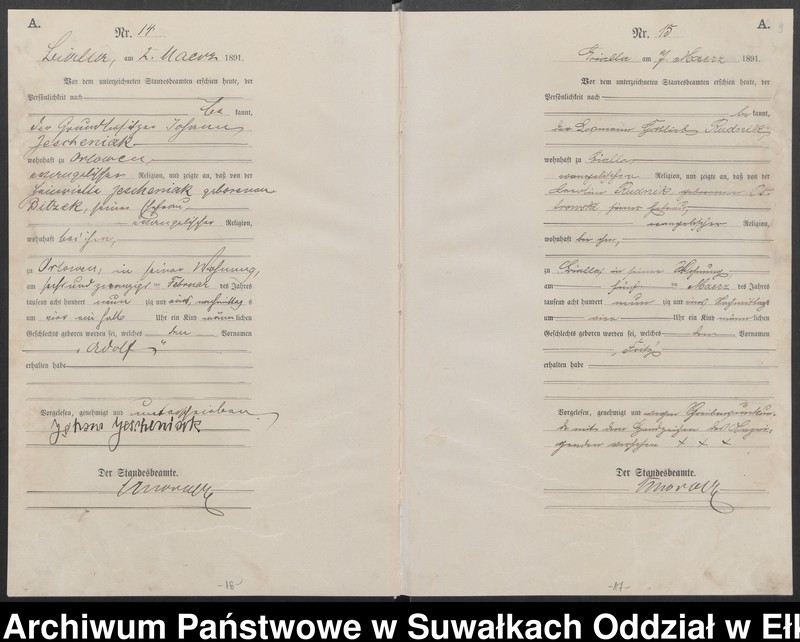 A.
Nr. 14
am 2. Maerz 1891.
Vor dem unterzeichneten Standesbeamten erschien heute, der
Persönlichkeit nach
be kannt,
der Grundbesitzer Johann
Jescheniak
wohnhaft zu Orlowen,
evangelischer Religion, und zeigte an, daß von der
Jescheniak geborenen
seiner Ehefrau,
evangelischer Religion,
wohnhaft bei ihm,
zu Orlowen, in seiner Wohnung,
am sechsundzwanzigsten Februar des Jahres
tausend acht hundert neun zig und eins nachmittag s
um ein halb Uhr ein Kind männ lichen
Geschlechts geboren worden sei, welches den Vornamen
„Adolf“
erhalten habe
Vorgelesen, genehmigt und unterschrieben
Johann Jescheniak
Der Standesbeamte.
-16-
A.
Nr. 15
Bialla am 7. Maerz 1891.
Vor dem unterzeichneten Standesbeamten erschien heute, der
Persönlichkeit nach
be kannt,
der Losmann Gottlieb Rudnik,
wohnhaft zu Bialla,
evangelischen Religion, und zeigte an, daß von der
Rudnik, geborenen
seiner Ehefrau,
evangelischer Religion,
wohnhaft bei ihm,
zu Bialla, in seiner Wohnung,
am fünf ten Maerz des Jahres
tausend acht hundert neun zig und eins Nachmittags
um vier Uhr ein Kind männ lichen
Geschlechts geboren worden sei, welches den Vornamen
„Fritz“
erhalten habe
Vorgelesen, genehmigt und wegen Schreibensunkun-
de mit dem Handzeichen des
versehen + + +
Der Standesbeamte.
-17-
Archiwum Państwowe w Suwałkach Oddział w Ełk